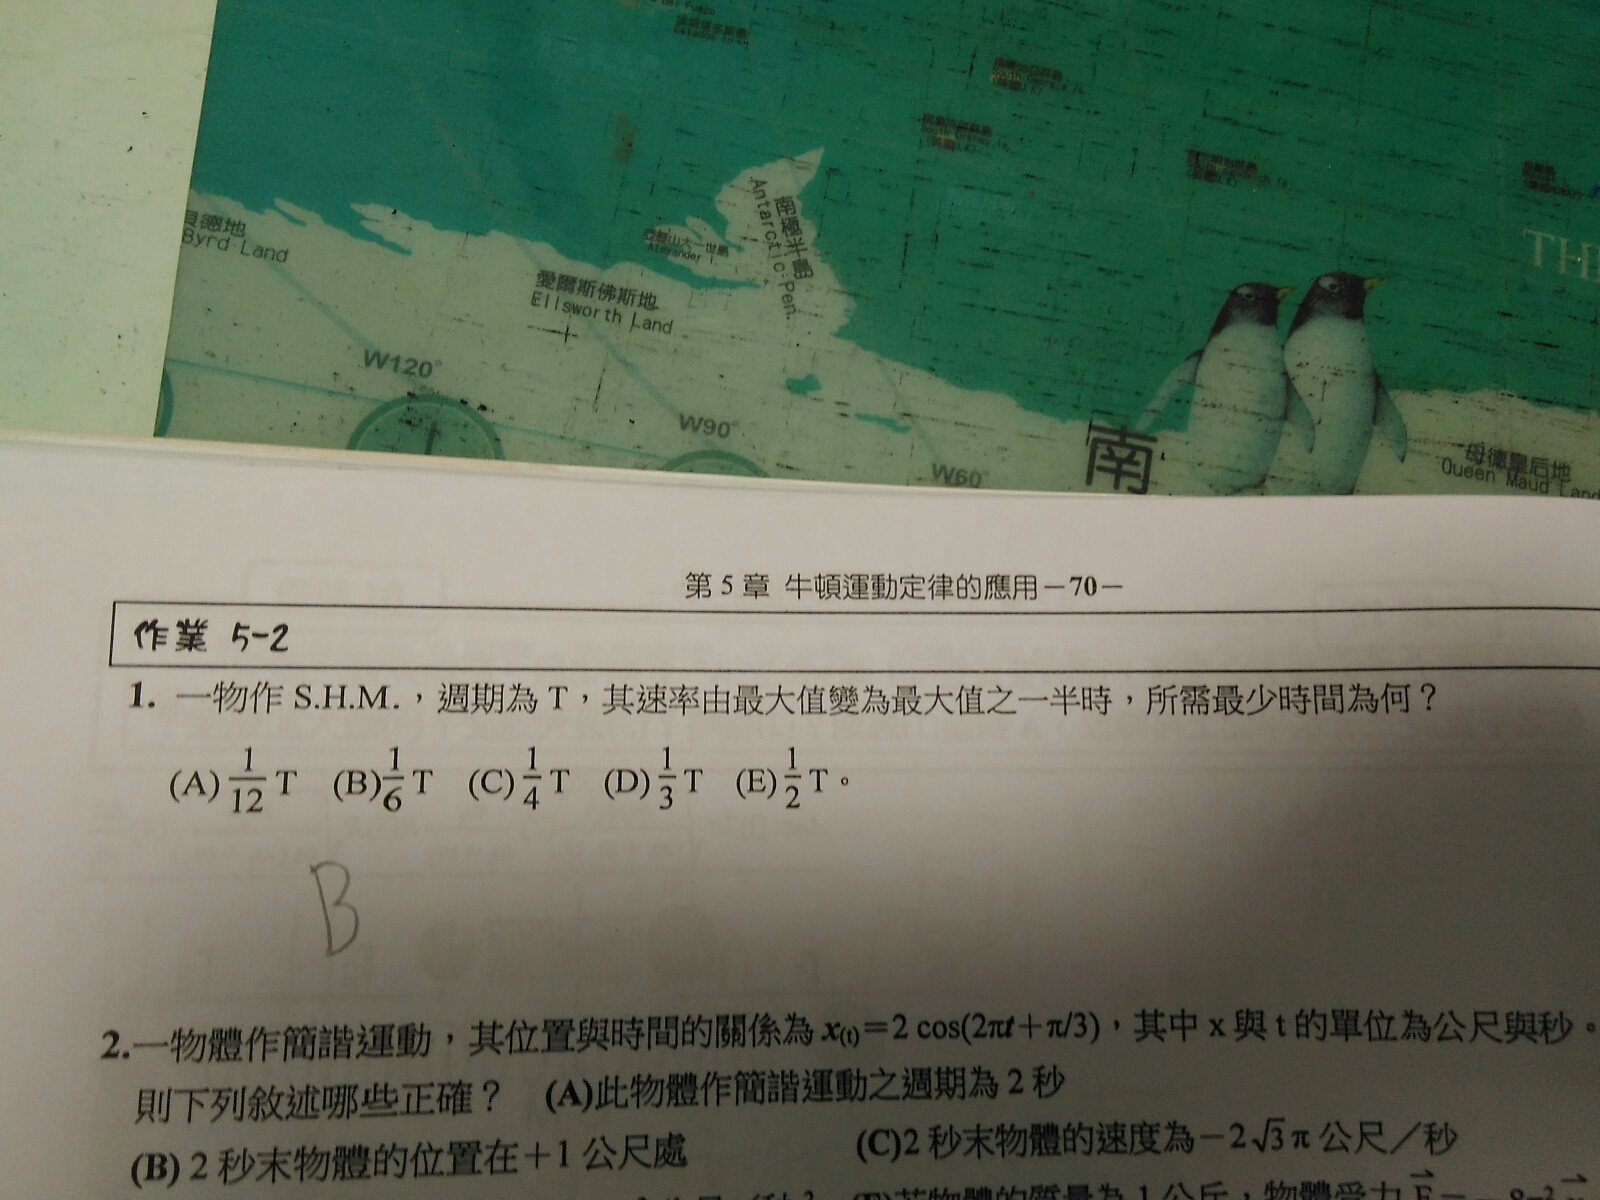 貝德地
Byrd Land
愛爾斯佛斯地
Ellsworth Land
亞歷山大一世島
Alexander I.
南極半島
Antarctic Pen.
W120°
W90°
W60°
南
母德皇后地
Queen Maud Land
TH
第 5 章 牛頓運動定律的應用－70－
作業 5-2
1. 一物作 S.H.M.，週期為 T，其速率由最大值變為最大值之一半時，所需最少時間為何？
(A) 1/12 T (B) 1/6 T (C) 1/4 T (D) 1/3 T (E) 1/2 T。
B
2.一物體作簡諧運動，其位置與時間的關係為 x(t)＝2 cos(2πt＋π/3)，其中 x 與 t 的單位為公尺與秒。
則下列敘述哪些正確？ (A)此物體作簡諧運動之週期為 2 秒
(B) 2 秒末物體的位置在＋1 公尺處 (C)2 秒末物體的速度為－2√3π 公尺／秒
(E)若物體的質量為 1 公斤，物體受力